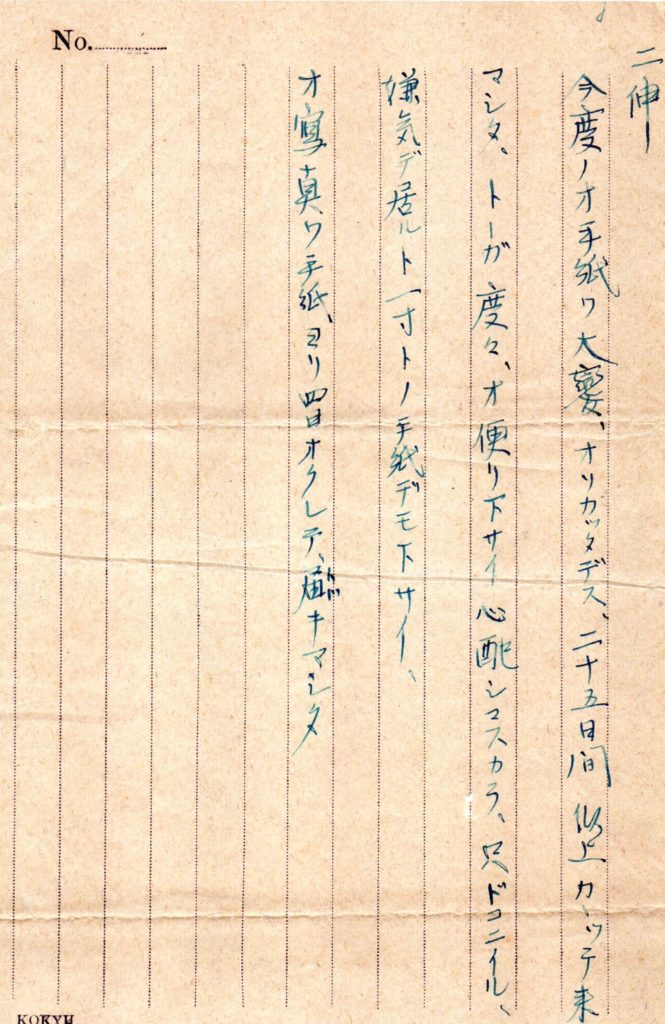 No.
二伸
今度ノオ手紙ワ大変、オソカッタデス、二十五日間以上カヽッテ来
マシタ、トーガ度々、オ便リ下サイ心配シマスカラ、只ドコニイル、
嫌気デ居ルト一寸トノ手紙デモ下サイ、
オ寫真ワ手紙、ヨリ四日オクレテ、届キマシタ
トド
KOKYU